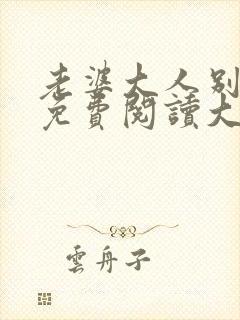 老婆大人别
免費閱讀大
雲舟子